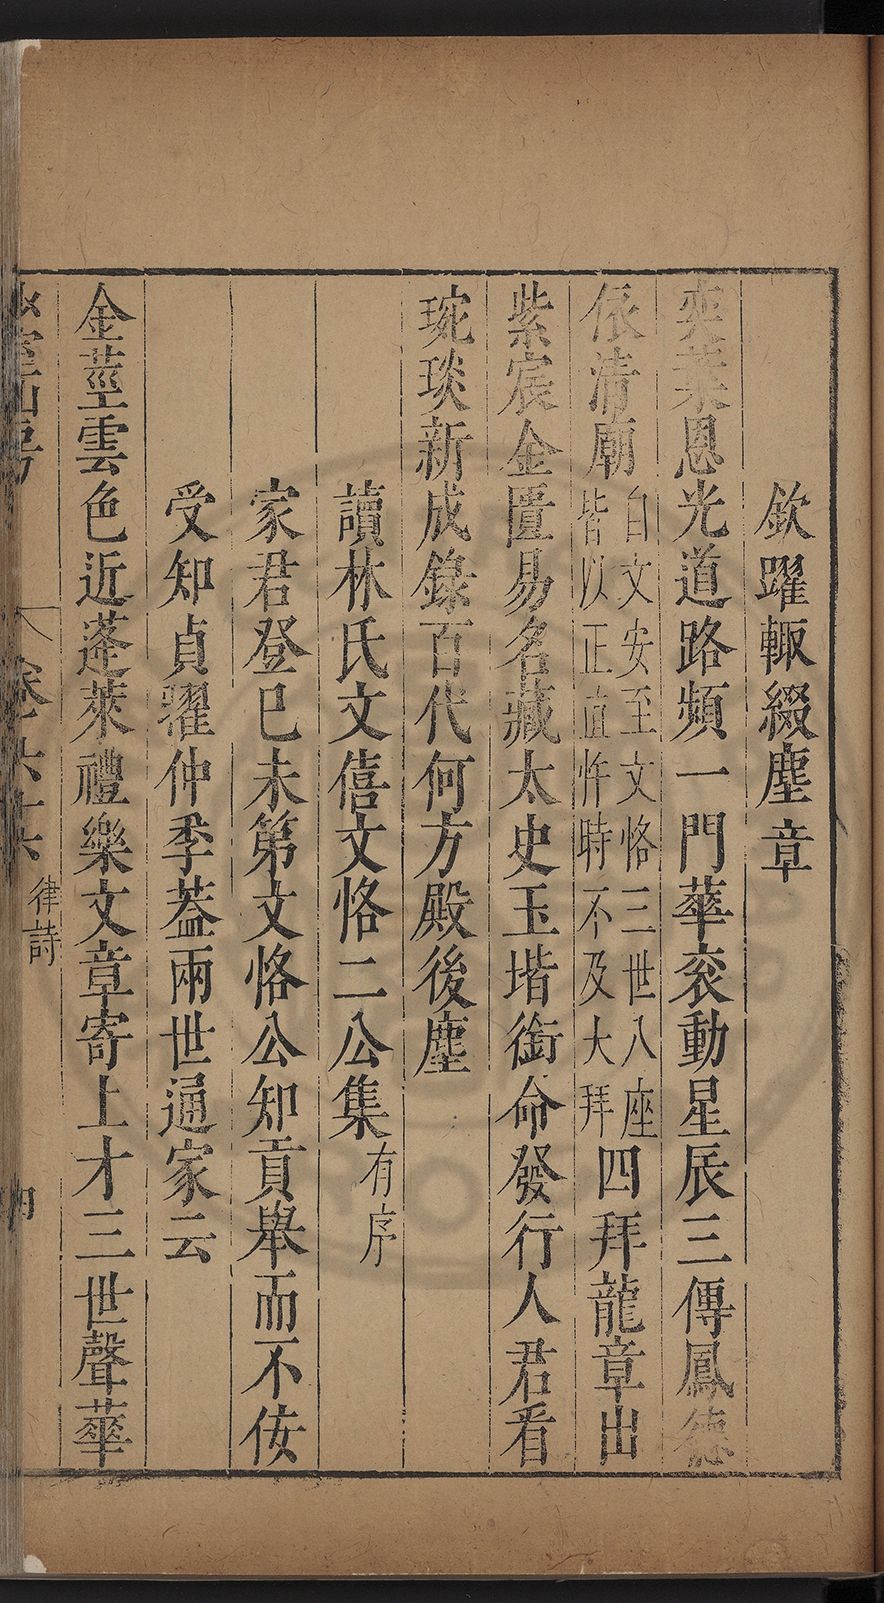 欽躍輙綴塵章
奕葉恩光道路頻一門華衮動星辰三傳鳳德
依清廟自文安至文恪三世八座皆以正直忤時不及大拜四拜龍章出
紫宸金匱易名藏太史玉堦銜命發行人君看
琬琰新成錄百代何方殿後塵
讀林氏文僖文恪二公集有序
家君登巳未第文恪公知貢舉而不佞
受知貞耀仲季葢兩世通家云
金莖雲色近蓬萊禮樂文章寄上才三世聲華
卷六十六 律詩